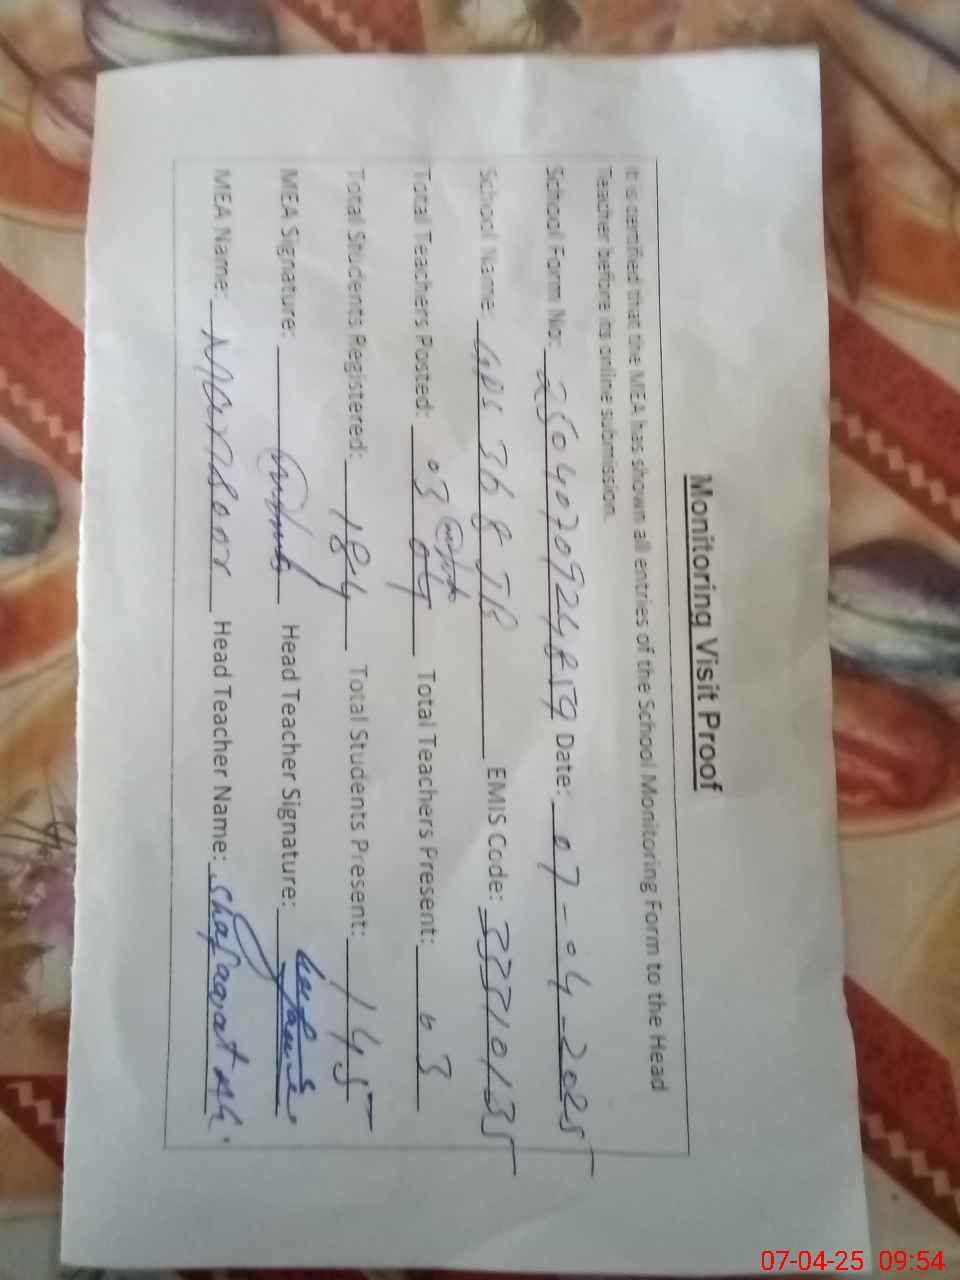 Monitoring Visit Proof
It is certified that the MEA has shown all entries of the School Monitoring Form to the Head
Teacher before its online submission.
School Form No: 2504070924859 Date: 07-04-2025
School Name: GPS 368 JB EMIS Code: 33310135
Total Teachers Posted: 03 04 Total Teachers Present: 03
Total Students Registered: 184 Total Students Present: 145
MEA Signature: Head Teacher Signature:
MEA Name: Manzoor Head Teacher Name: Shafaqat Ali
07-04-25 09:54